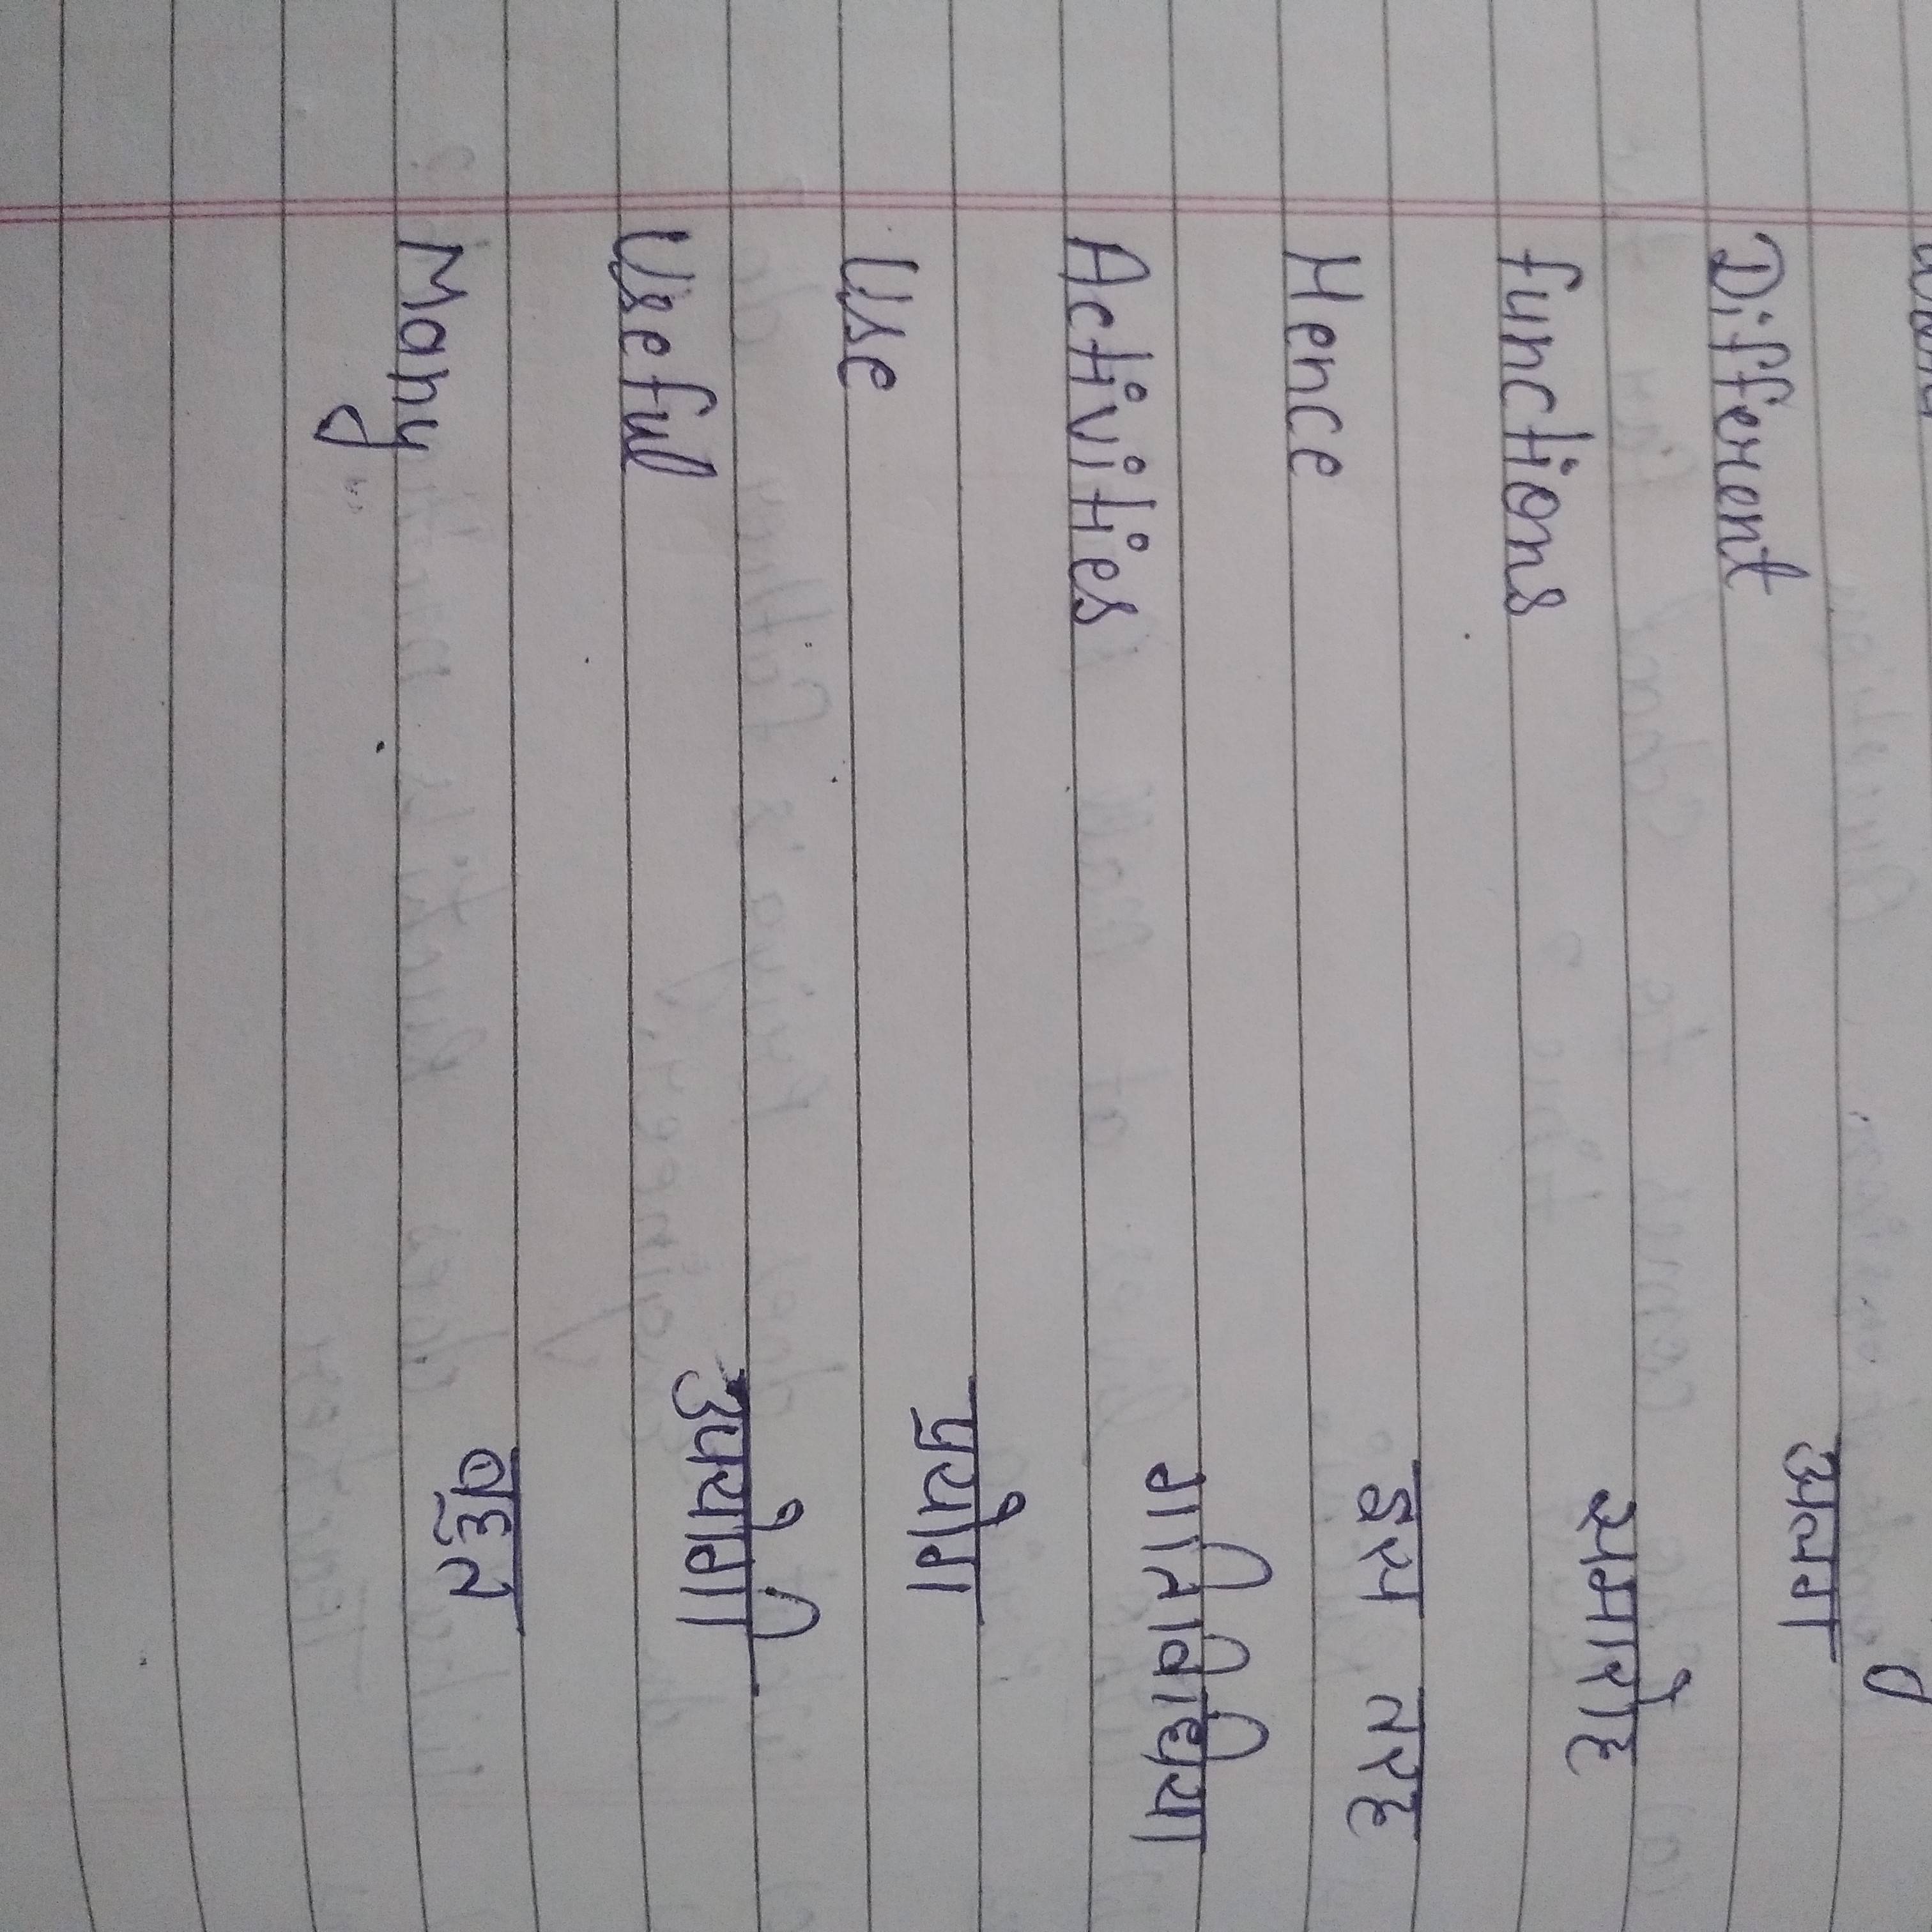 Different अलग
functions समारोह
Hence इस तरह
Activities गतिविधिया
Use प्रयोग
Useful उपयोगी
Many बहुत